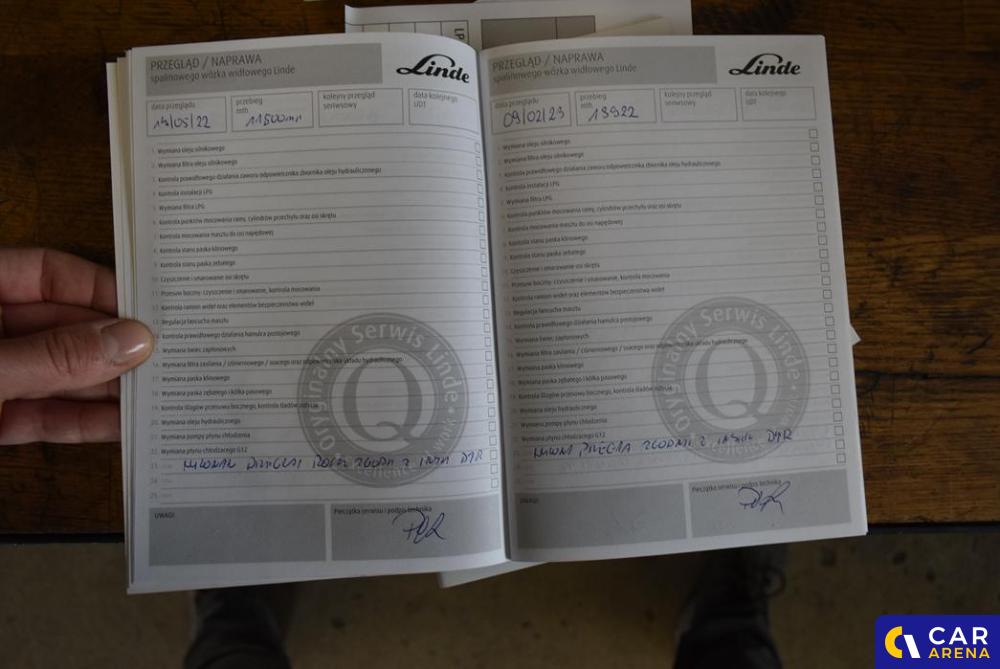 LP
PRZEGLĄD / NAPRAWA
spalinowego wózka widłowego Linde
Linde
data przeglądu
przebieg
mth
kolejny przegląd
serwisowy
data kolejnego
UDT
11500mh
1. Wymiana oleju silnikowego
2. Wymiana filtra oleju silnikowego
3. Kontrola prawidłowego działania zaworu odpowietrznika zbiornika oleju hydraulicznego
4. Kontrola instalacji LPG
5. Wymiana filtra LPG
6. Kontrola punktów mocowania ramy, cylindrów przechyłu oraz osi skrętu
7. Kontrola mocowania masztu do osi napędowej
8. Kontrola stanu paska klinowego
9. Kontrola stanu paska zębatego
10. Czyszczenie i smarowanie osi skrętu
11. Przesuw boczny: czyszczenie i smarowanie, kontrola mocowania
12. Kontrola ramion wideł oraz elementów bezpieczeństwa wideł
13. Regulacja łańcucha masztu
14. Kontrola prawidłowego działania hamulca postojowego
15. Wymiana świec zapłonowych
16. Wymiana filtra zasilania / ciśnieniowego / ssącego oraz odpowietrznika układu hydraulicznego
17. Wymiana paska klinowego
18. Wymiana paska zębatego i kółka pasowego
19. Kontrola ślizgów przesuwu bocznego, kontrola śladów zużycia
20. Wymiana oleju hydraulicznego
21. Wymiana pompy płynu chłodzenia
22. Wymiana płynu chłodzącego G12
23.
24.
25.
Oryginalny Serwis Linde
Q
UWAGI:
Pieczątka serwisu i podpis technika
PRZEGLĄD / NAPRAWA
spalinowego wózka widłowego Linde
Linde
data przeglądu
przebieg
mth
kolejny przegląd
serwisowy
data kolejnego
UDT
09/02/23
13922
1. Wymiana oleju silnikowego
2. Wymiana filtra oleju silnikowego
3. Kontrola prawidłowego działania zaworu odpowietrznika zbiornika oleju hydraulicznego
4. Kontrola instalacji LPG
5. Wymiana filtra LPG
6. Kontrola punktów mocowania ramy, cylindrów przechyłu oraz osi skrętu
7. Kontrola mocowania masztu do osi napędowej
8. Kontrola stanu paska klinowego
9. Kontrola stanu paska zębatego
10. Czyszczenie i smarowanie osi skrętu
11. Przesuw boczny: czyszczenie i smarowanie, kontrola mocowania
12. Kontrola ramion wideł oraz elementów bezpieczeństwa wideł
13. Regulacja łańcucha masztu
14. Kontrola prawidłowego działania hamulca postojowego
15. Wymiana świec zapłonowych
16. Wymiana filtra zasilania / ciśnieniowego / ssącego oraz odpowietrznika układu hydraulicznego
17. Wymiana paska klinowego
18. Wymiana paska zębatego i kółka pasowego
19. Kontrola ślizgów przesuwu bocznego, kontrola śladów zużycia
20. Wymiana oleju hydraulicznego
21. Wymiana pompy płynu chłodzenia
22. Wymiana płynu chłodzącego G12
Oryginalny Serwis Linde
Q
UWAGI:
Pieczątka serwisu i podpis technika
CAR
ARENA